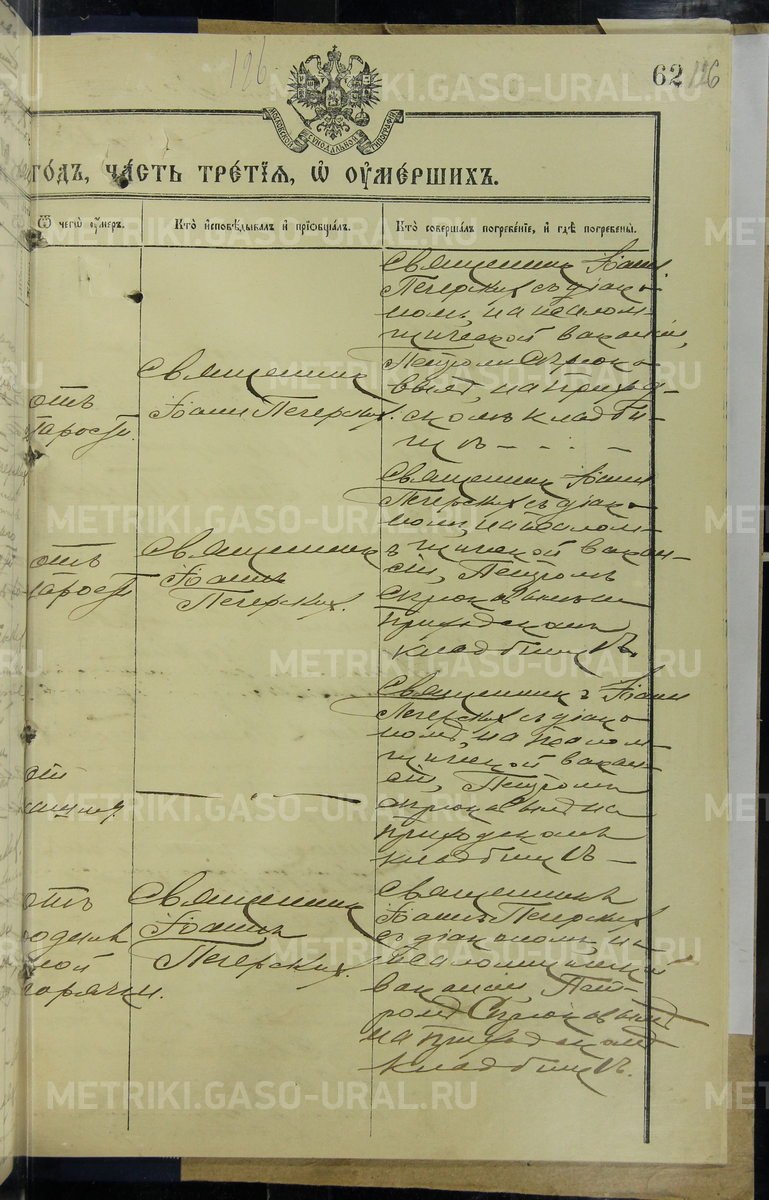 126
62 116
МОСКОВСКОЙ СѴНОДАЛЬНОЙ ТИПОГРАФІИ
ГОДЪ, ЧА́СТЬ ТРЕ́ТІѦ, Ѡ҆ ОУ҆МЕ́РШИХЪ.
Ѿ чегѡ̀ оу҆́меръ.
Кто̀ и҆сповѣ́дывалъ и҆ прїѡбща́лъ.
Кто̀ соверша́лъ погребе́нїе, и҆ гдѣ̀ погребены̀.
отъ
тарости.
Священникъ
Іоаннъ Печерскихъ.
Священникъ Іоаннъ
Печерскихъ съ діако-
номъ, на псалом-
щической вакансіи,
Петромъ
вымъ, на приход-
скомъ кладби-
щѣ
отъ
тарости
Священникъ
Іоаннъ
Печерскихъ.
Священникъ Іоаннъ
Печерскихъ съ діако-
номъ, на псалом-
щической вакан-
сіи, Петромъ
на
приходскомъ
кладбищѣ.
отъ
Священникъ Іоаннъ
Печерскихъ съ діако-
номъ, на псалом-
щической вакан-
сіи, Петромъ
на
приходскомъ
кладбищѣ
отъ
ной
горячки.
Священникъ
Іоаннъ
Печерскихъ.
Священникъ
Іоаннъ Печерскихъ
съ діакономъ, на
псаломщической
вакансіи, Пет-
ромъ
на приходскомъ
кладбищѣ.
METRIKI.GASO-URAL.RU